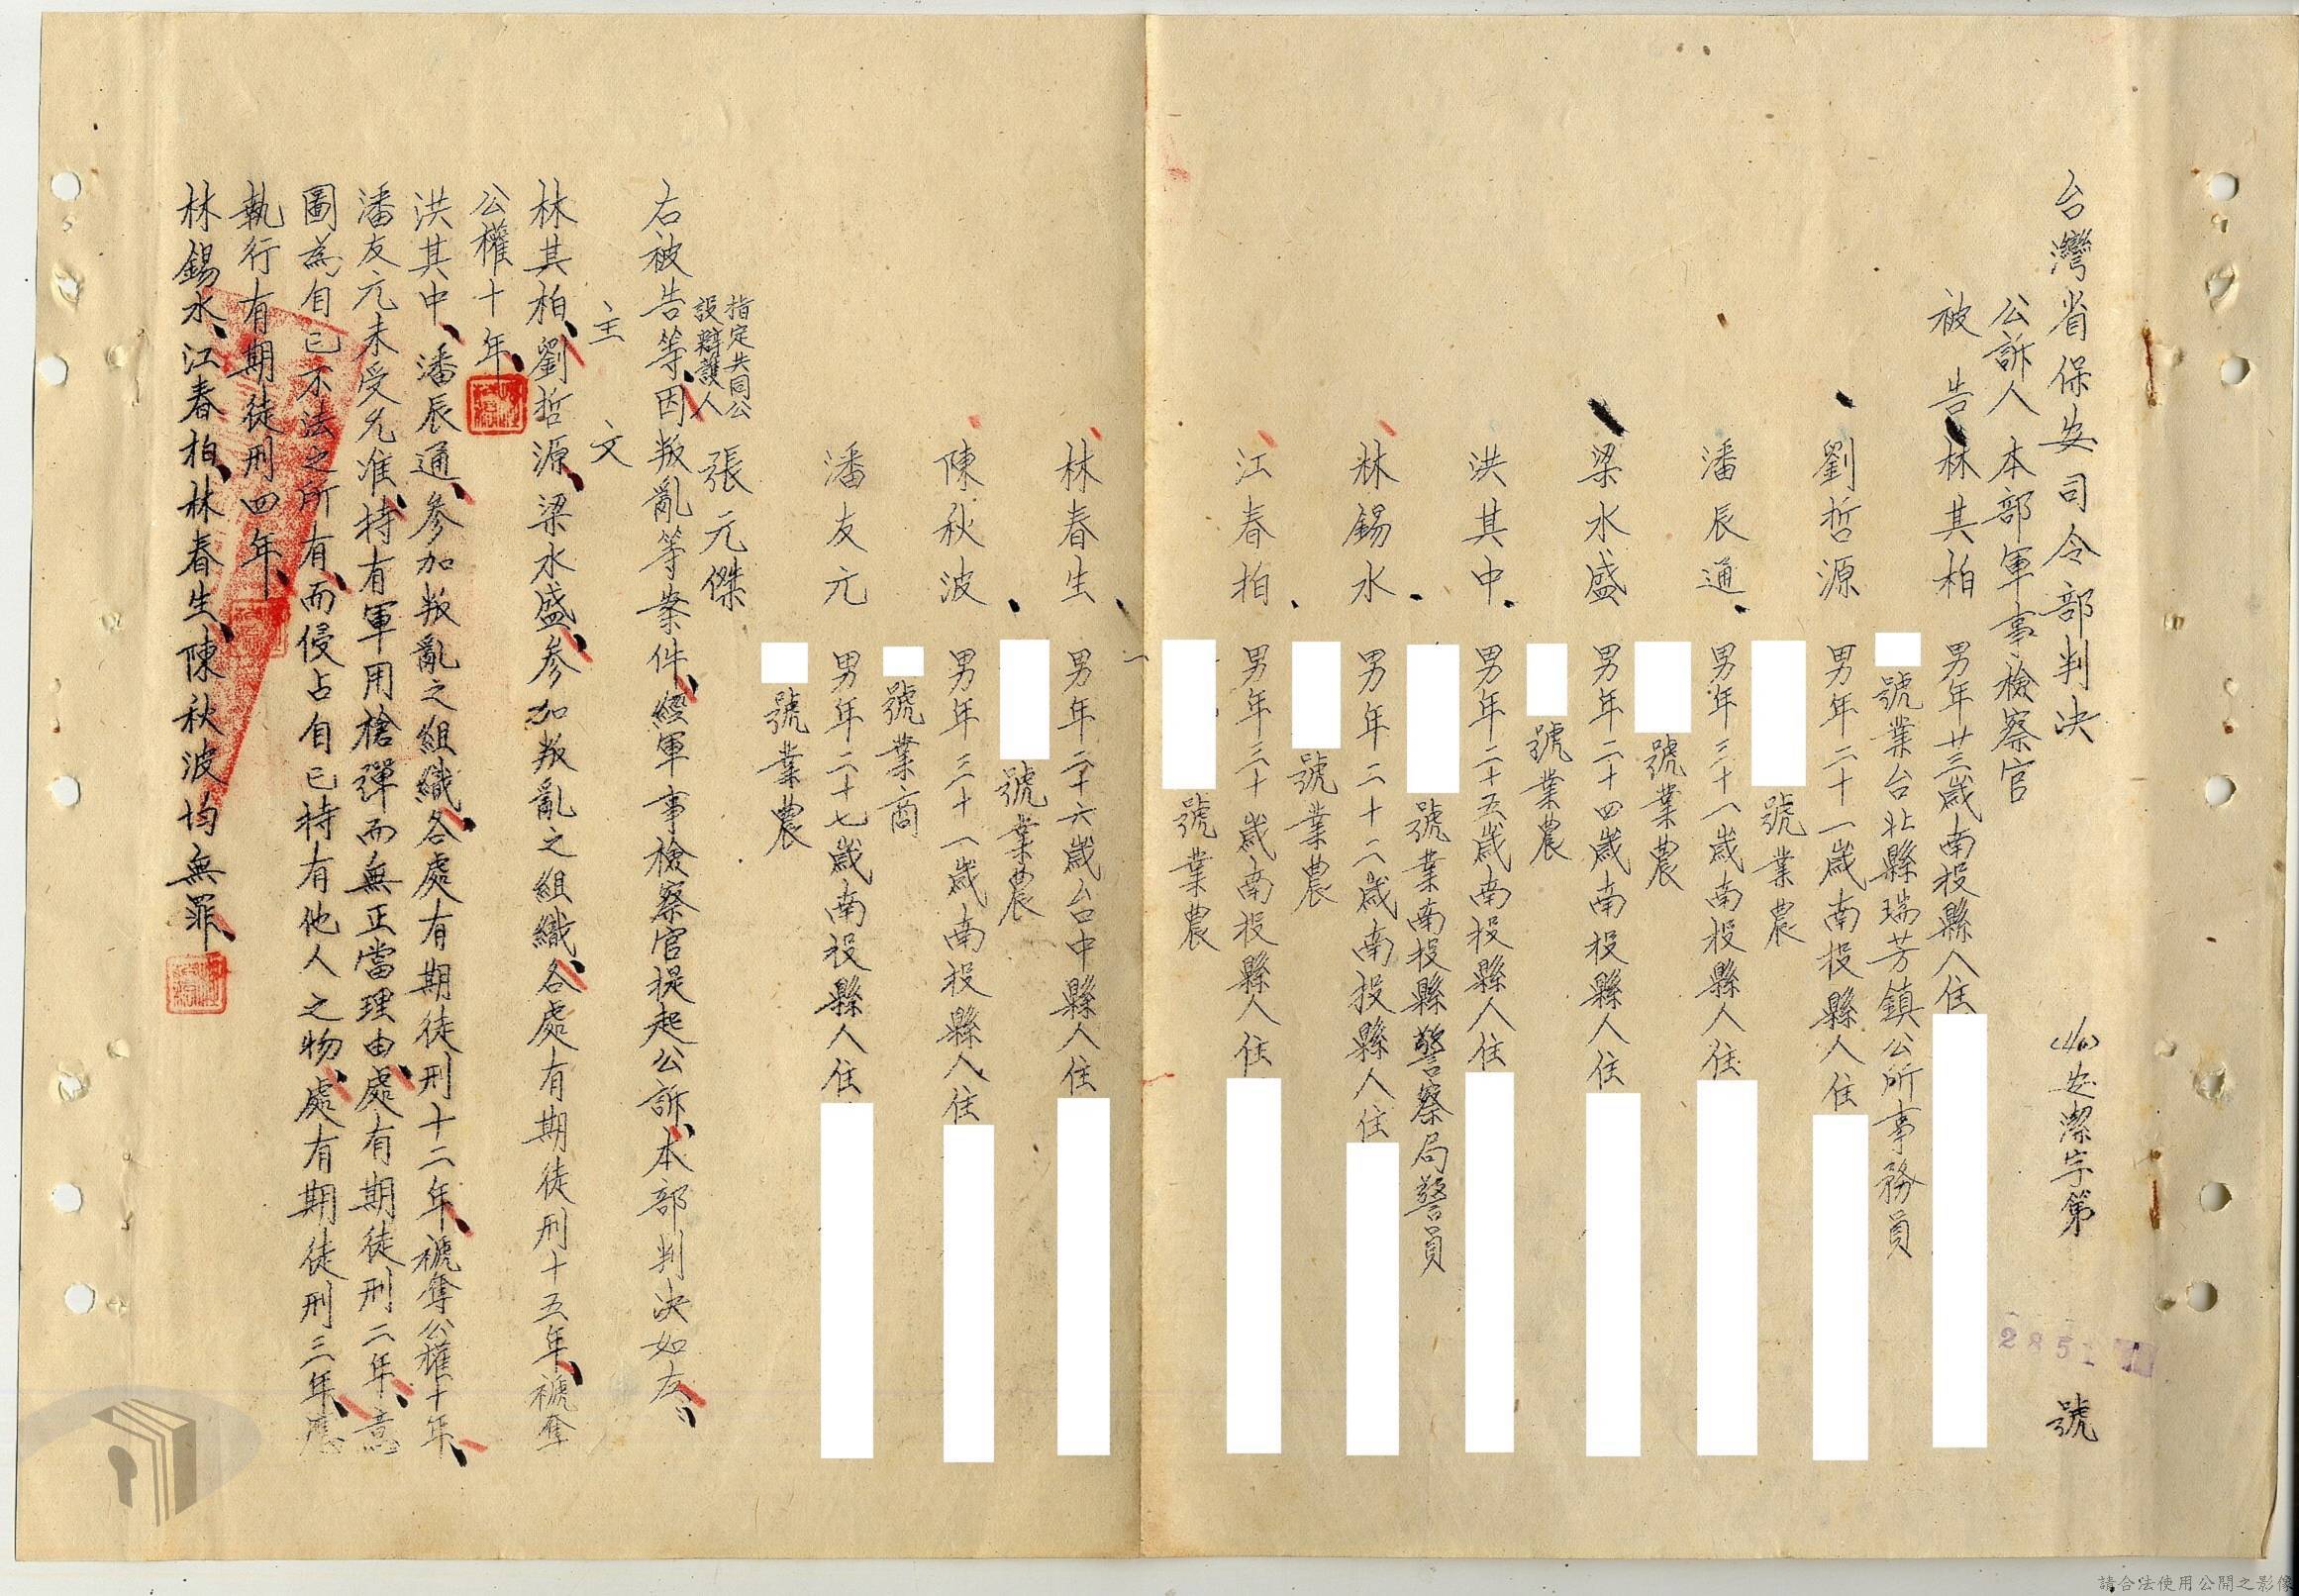 台灣省保安司令部判決 (40)安潔字第 2851 號
公訴人 本部軍事檢察官
被告 林其柏 男年廿三歲南投縣人住
號業台北縣瑞芳鎮公所事務員
劉哲源 男年二十一歲南投縣人住
號業農
潘辰通 男年三十一歲南投縣人住
號業農
梁水盛 男年二十四歲南投縣人住
號業農
洪其中 男年二十五歲南投縣人住
號業南投縣警察局警員
林錫水 男年二十二歲南投縣人住
號業農
江春柏 男年三十歲南投縣人住
號業農
林春生 男年二十六歲台中縣人住
號業農
陳秋波 男年三十一歲南投縣人住
號業商
潘友元 男年二十七歲南投縣人住
號業農
指定共同公設辯護人 張元傑
右被告等、因叛亂等案件、經軍事檢察官提起公訴、本部判決如左：
主文
林其柏、劉哲源、梁水盛、參加叛亂之組織、各處有期徒刑十五年、褫奪
公權十年、
洪其中、潘辰通、參加叛亂之組織、各處有期徒刑十二年、褫奪公權十年、
潘友元未受允准、持有軍用槍彈而無正當理由、處有期徒刑二年、意
圖為自己不法之所有、而侵占自己持有他人之物、處有期徒刑三年、應
執行有期徒刑四年、
林錫水、江春柏、林春生、陳秋波均無罪、
請合法使用公開之影像